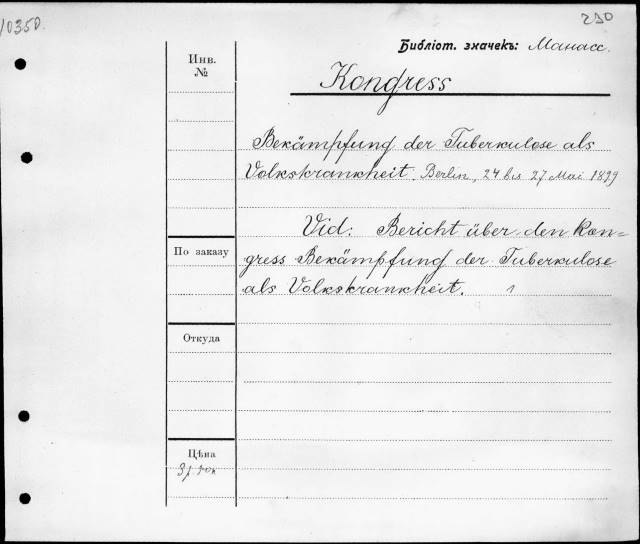 10350.
290
Библіот. значекъ: Манасс.
Инв.
№
Kongress
Bekämpfung der Tuberkulose als
Volkskrankheit. Berlin, 24 bis 27 Mai 1899
Vid: Bericht über den Kon=
По заказу
gress Bekämpfung der Tuberkulose
als Volkskrankheit.
Откуда
Цѣна